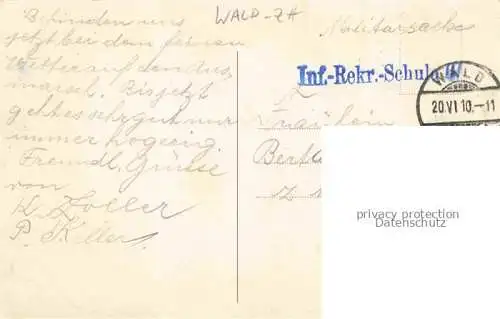 WALD-ZH
Militärsache
Befinden uns
jetzt bei dem feinen
Wetter auf dem Aus-
marsch. Bis jetzt
geht es sehr gut nur
immer
Freundl. Grüsse
von
K. Zoller
P. Keller
Inf.-Rekr.-Schule
WALD
20.VI.10.-11
Fräulein
Bert
privacy protection
Datenschutz